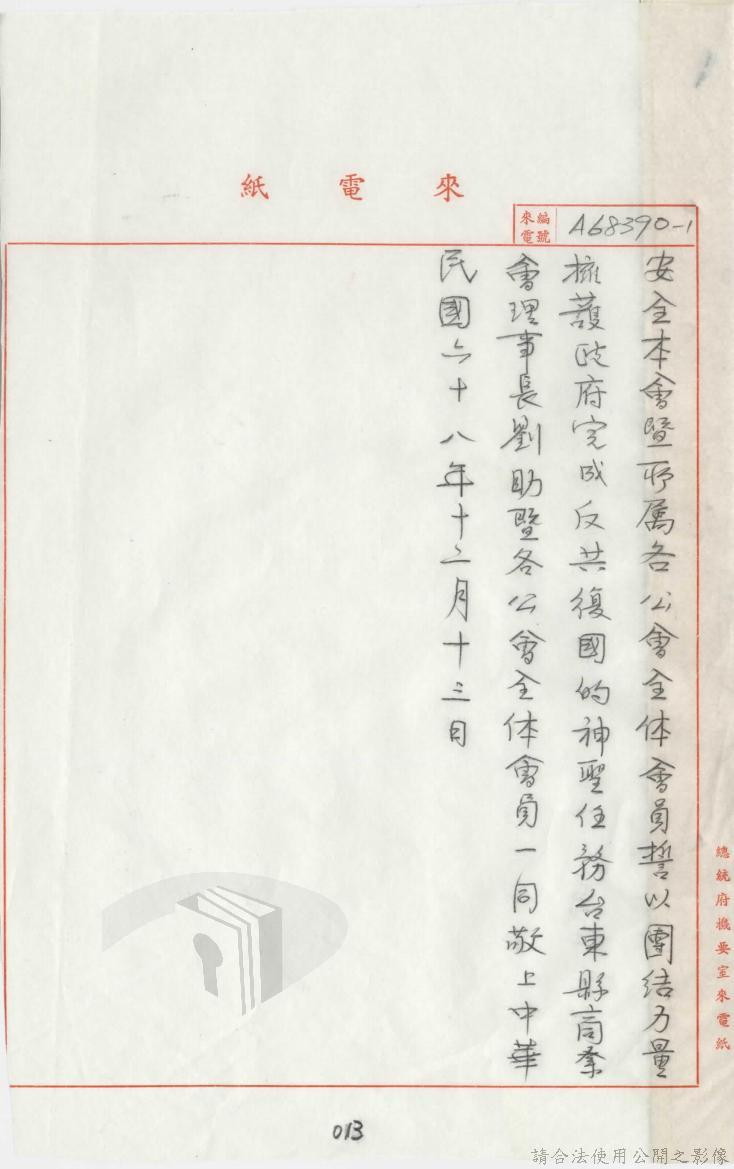 來電紙
來電編號
A68390-1
安全本會暨所屬各公會全体會員誓以團结力量
擁護政府完成反共復國的神聖任務台東縣商業
會理事長劉助暨各公會全体會員一同敬上中華
民國六十八年十二月十三日
總統府機要室來電紙
013
請合法使用公開之影像